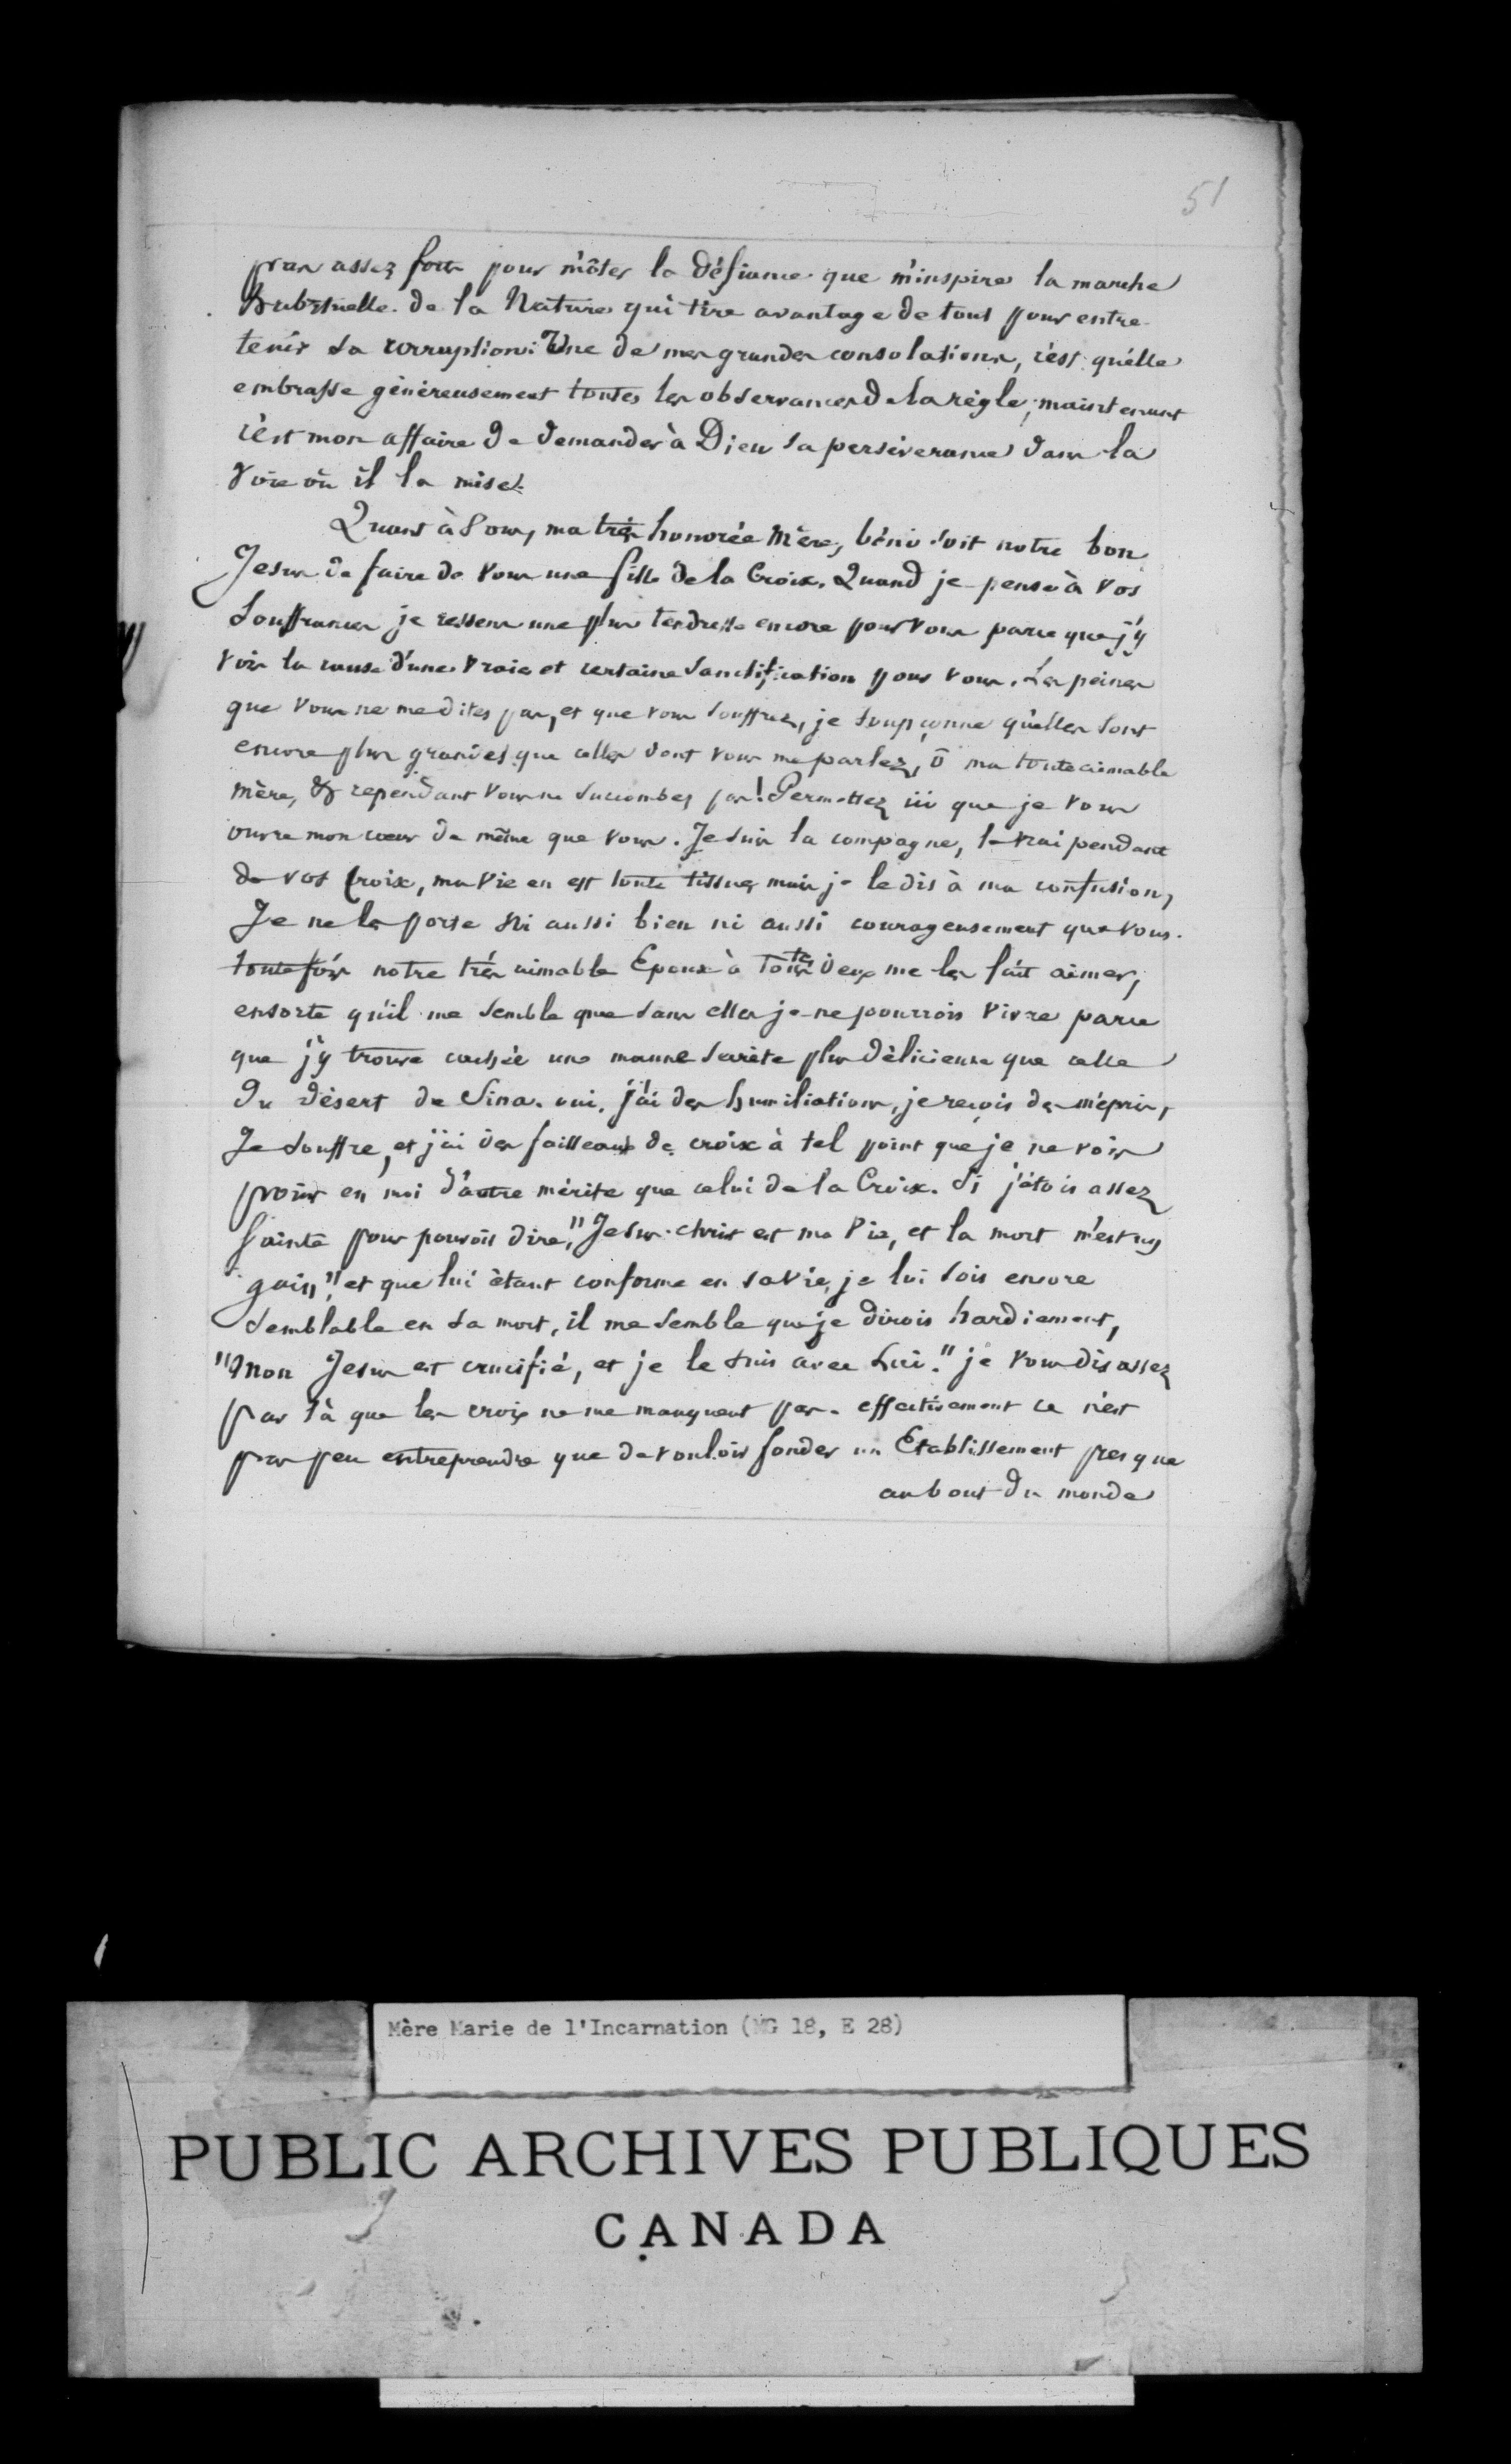 51
pas assez forte pour m'ôter la défiance que m'inspire la marche
habituelle de la Nature qui tire avantage de tout pour entre-
tenir sa corruption: Une de mes grandes consolations, c'est qu'elle
embrasse généreusement toutes les observances de la règle; maintenant
c'est mon affaire de demander à Dieu sa persévérance dans la
voie où il la mise.
Quant à Vous, ma très honorée Mère, béni soit notre bon
Jesus de faire de vous une fille de la Croix. Quand je pense à vos
Souffrances je ressens une plus tendresse encore pour vous parce que j'y
vois la cause d'une vraie et certaine Sanctification pour vous. Les peines
que vous ne me dites pas, et que vous souffrez, je soupçonne qu'elles sont
encore plus grandes que celles dont vous me parlez, ô ma toute aimable
mère, & cependant vous ne succombez pas! Permettez ici que je vous
ouvre mon cœur de même que vous. Je suis la compagne, le vrai pendant
de vos Croix, ma vie en est toute tissue, mais je le dis à ma confusion,
Je ne les porte ni aussi bien ni aussi courageusement que vous.
toutefois notre très aimable Epoux à toutes deux me les fait aimer,
ensorte qu'il me semble que sans elles je ne pourrois vivre parce
que j'y trouve cachée une manne secrète plus délicieuse que celle
du désert de Sina. oui, j'ai des humiliations, je reçois des mépris,
Je souffre, et j'ai des faisseaux de croix à tel point que je ne vois
point en moi d'autre mérite que celui de la Croix. Si j'étois assez
Sainte pour pouvoir dire, "Jesus-christ est ma Vie, et la mort m'est un
gain", et que lui étant conforme en sa vie, je lui sois encore
semblable en sa mort, il me semble que je dirois hardiement,
"Mon Jesus est crucifié, et je le suis avec Lui." je vous dis assez
par là que les croix ne me manquent pas. effectivement ce n'est
pas peu entreprendre que de vouloir fonder un Etablissement presque
au bout du monde
Mère Marie de l'Incarnation (MG 18, E 28)
PUBLIC ARCHIVES PUBLIQUES
CANADA